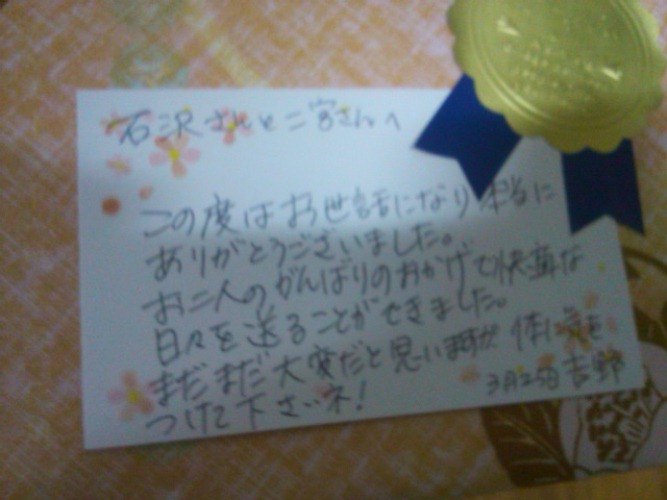 石沢さんと二宮さんへ
この度はお世話になり本当に
ありがとうございました。
お二人のがんばりのおかげで快適な
日々を送ることができました。
まだまだ大変だと思いますが体に気を
つけて下さいネ!
3月25日 吉野